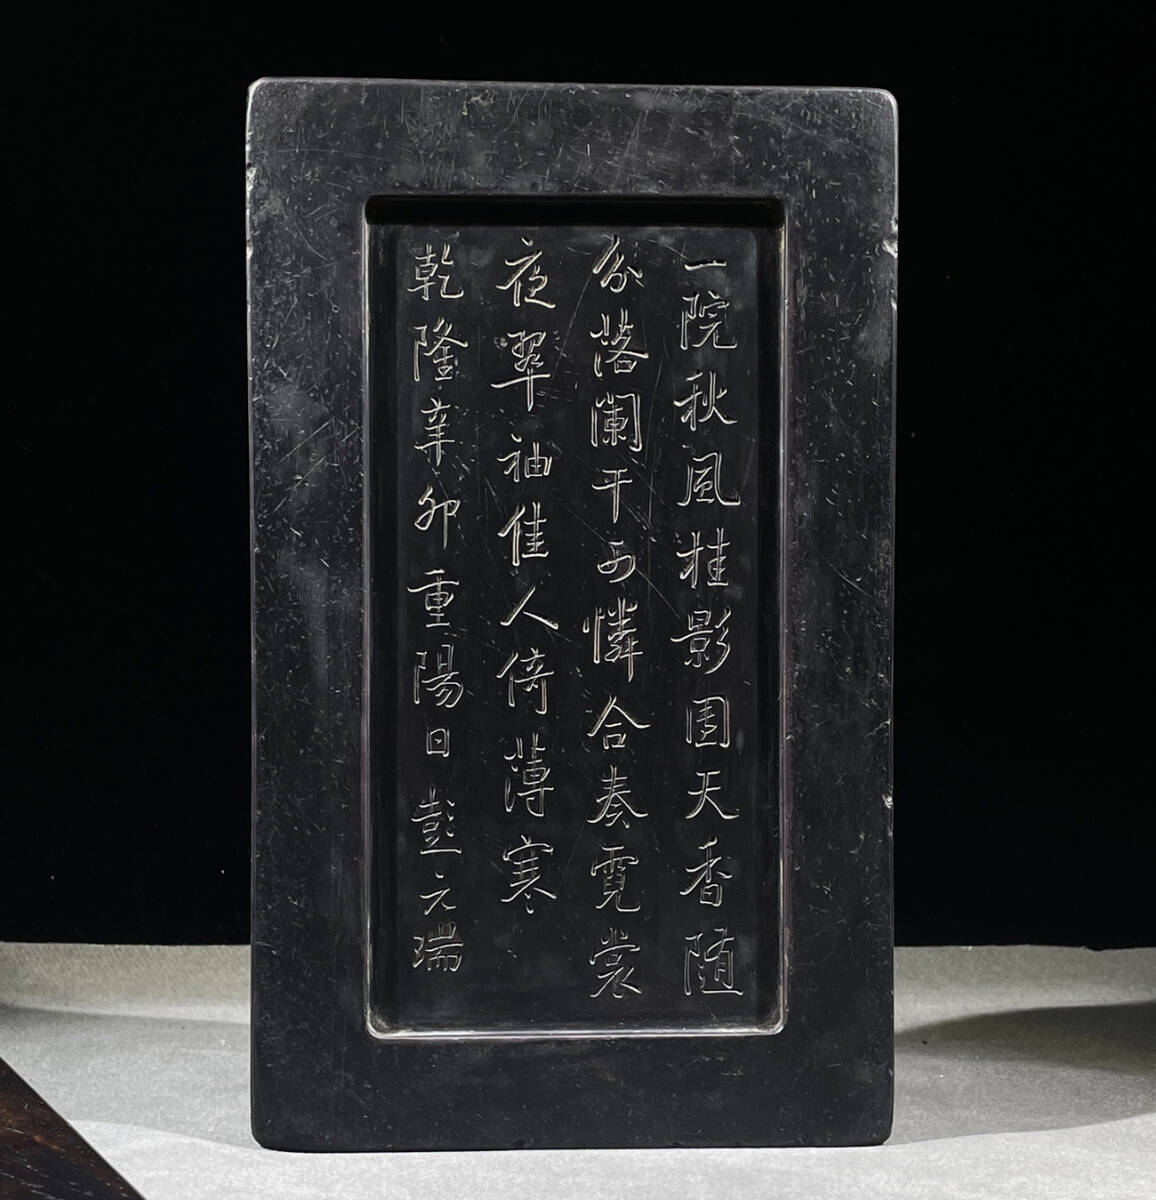 一院秋風桂影團天香隨
分落闌干可憐合奏霓裳
夜翠袖佳人倚薄寒
乾隆辛卯重陽日彭元瑞